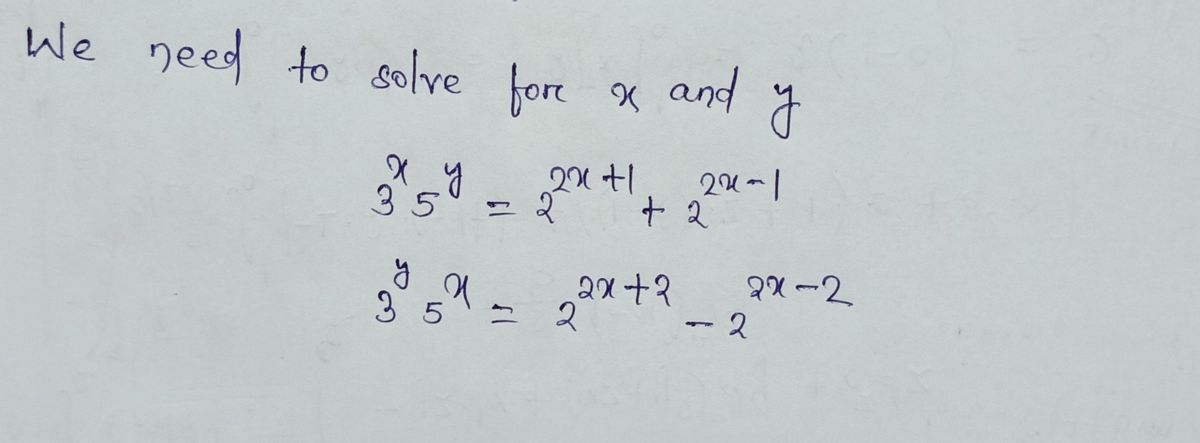 We need to solve fore x and y
3^x 5^y = 2^{2x+1} + 2^{2x-1}
3^y 5^x = 2^{2x+2} - 2^{2x-2}